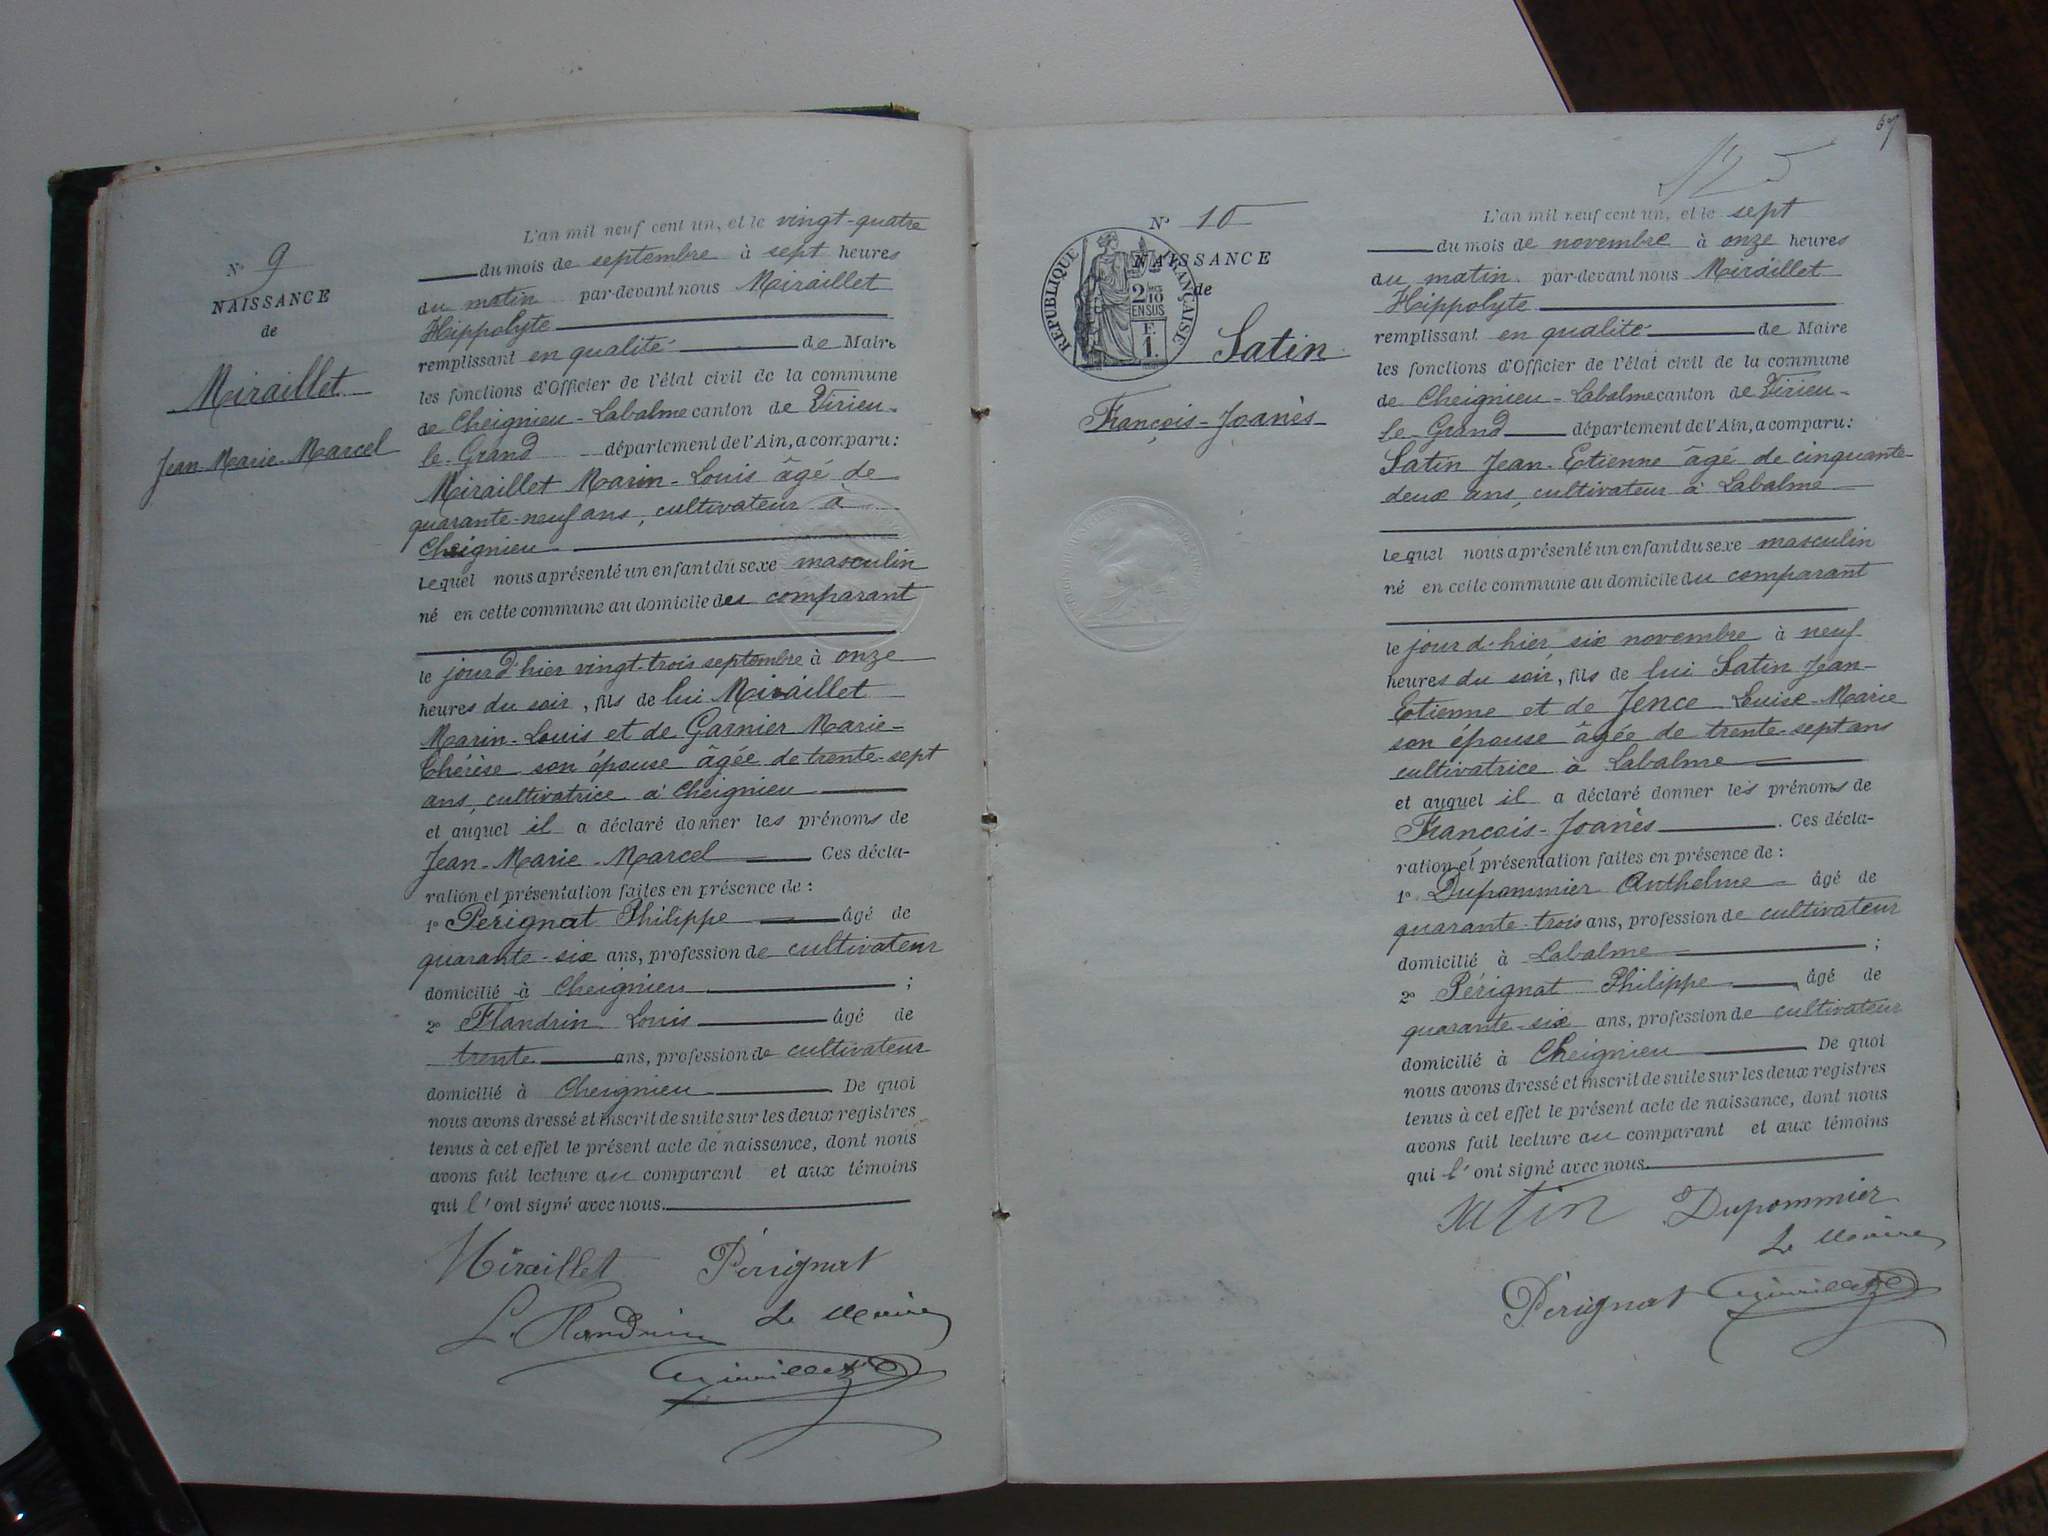 N° 9
NAISSANCE
de
Miraillet
Jean-Marie-Marcel
L'an mil neuf cent un, et le vingt-quatre
du mois de septembre à sept heures
du matin par-devant nous Miraillet
Hippolyte
remplissant en qualité de Maire
les fonctions d'Officier de l'état civil de la commune
de Cheignieu-Labalme canton de Virieu-
le-Grand département de l'Ain, a comparu :
Miraillet Marin-Louis âgé de
quarante-neuf ans, cultivateur à
Cheignieu
Lequel nous a présenté un enfant du sexe masculin
né en cette commune au domicile des comparant
le jour d'hier vingt-trois septembre à onze
heures du soir, fils de lui Miraillet
Marin-Louis et de Garnier Marie-
Thérèse son épouse âgée de trente-sept
ans, cultivatrice à Cheignieu
et auquel il a déclaré donner les prénoms de
Jean-Marie-Marcel Ces décla-
ration et présentation faites en présence de :
1° Pérignat Philippe âgé de
quarante-six ans, profession de cultivateur
domicilié à Cheignieu ;
2° Flandrin Louis âgé de
trente ans, profession de cultivateur
domicilié à Cheignieu De quoi
nous avons dressé et inscrit de suite sur les deux registres
tenus à cet effet le présent acte de naissance, dont nous
avons fait lecture au comparant et aux témoins
qui l'ont signé avec nous.
Miraillet Pérignat
L. Flandrin Le Maire
Miraillet
67
125
N° 10
NAISSANCE
de
RÉPUBLIQUE FRANÇAISE
2/10
EN SUS
F.
1.
Satin
François-Joanès
L'an mil neuf cent un, et le sept
du mois de novembre à onze heures
du matin par-devant nous Miraillet
Hippolyte
remplissant en qualité de Maire
les fonctions d'Officier de l'état civil de la commune
de Cheignieu-Labalme canton de Virieu-
le-Grand département de l'Ain, a comparu :
Satin Jean-Etienne âgé de cinquante-
deux ans, cultivateur à Labalme
Lequel nous a présenté un enfant du sexe masculin
né en cette commune au domicile du comparant
le jour d'hier six novembre à neuf
heures du soir, fils de lui Satin Jean-
Etienne et de Jence Louise-Marie
son épouse âgée de trente-sept ans
cultivatrice à Labalme
et auquel il a déclaré donner les prénoms de
François-Joanès . Ces décla-
ration et présentation faites en présence de :
1° Dupommier Anthelme âgé de
quarante-trois ans, profession de cultivateur
domicilié à Labalme ;
2° Pérignat Philippe âgé de
quarante-six ans, profession de cultivateur
domicilié à Cheignieu De quoi
nous avons dressé et inscrit de suite sur les deux registres
tenus à cet effet le présent acte de naissance, dont nous
avons fait lecture au comparant et aux témoins
qui l'ont signé avec nous.
Satin Dupommier
Le Maire
Pérignat Miraillet